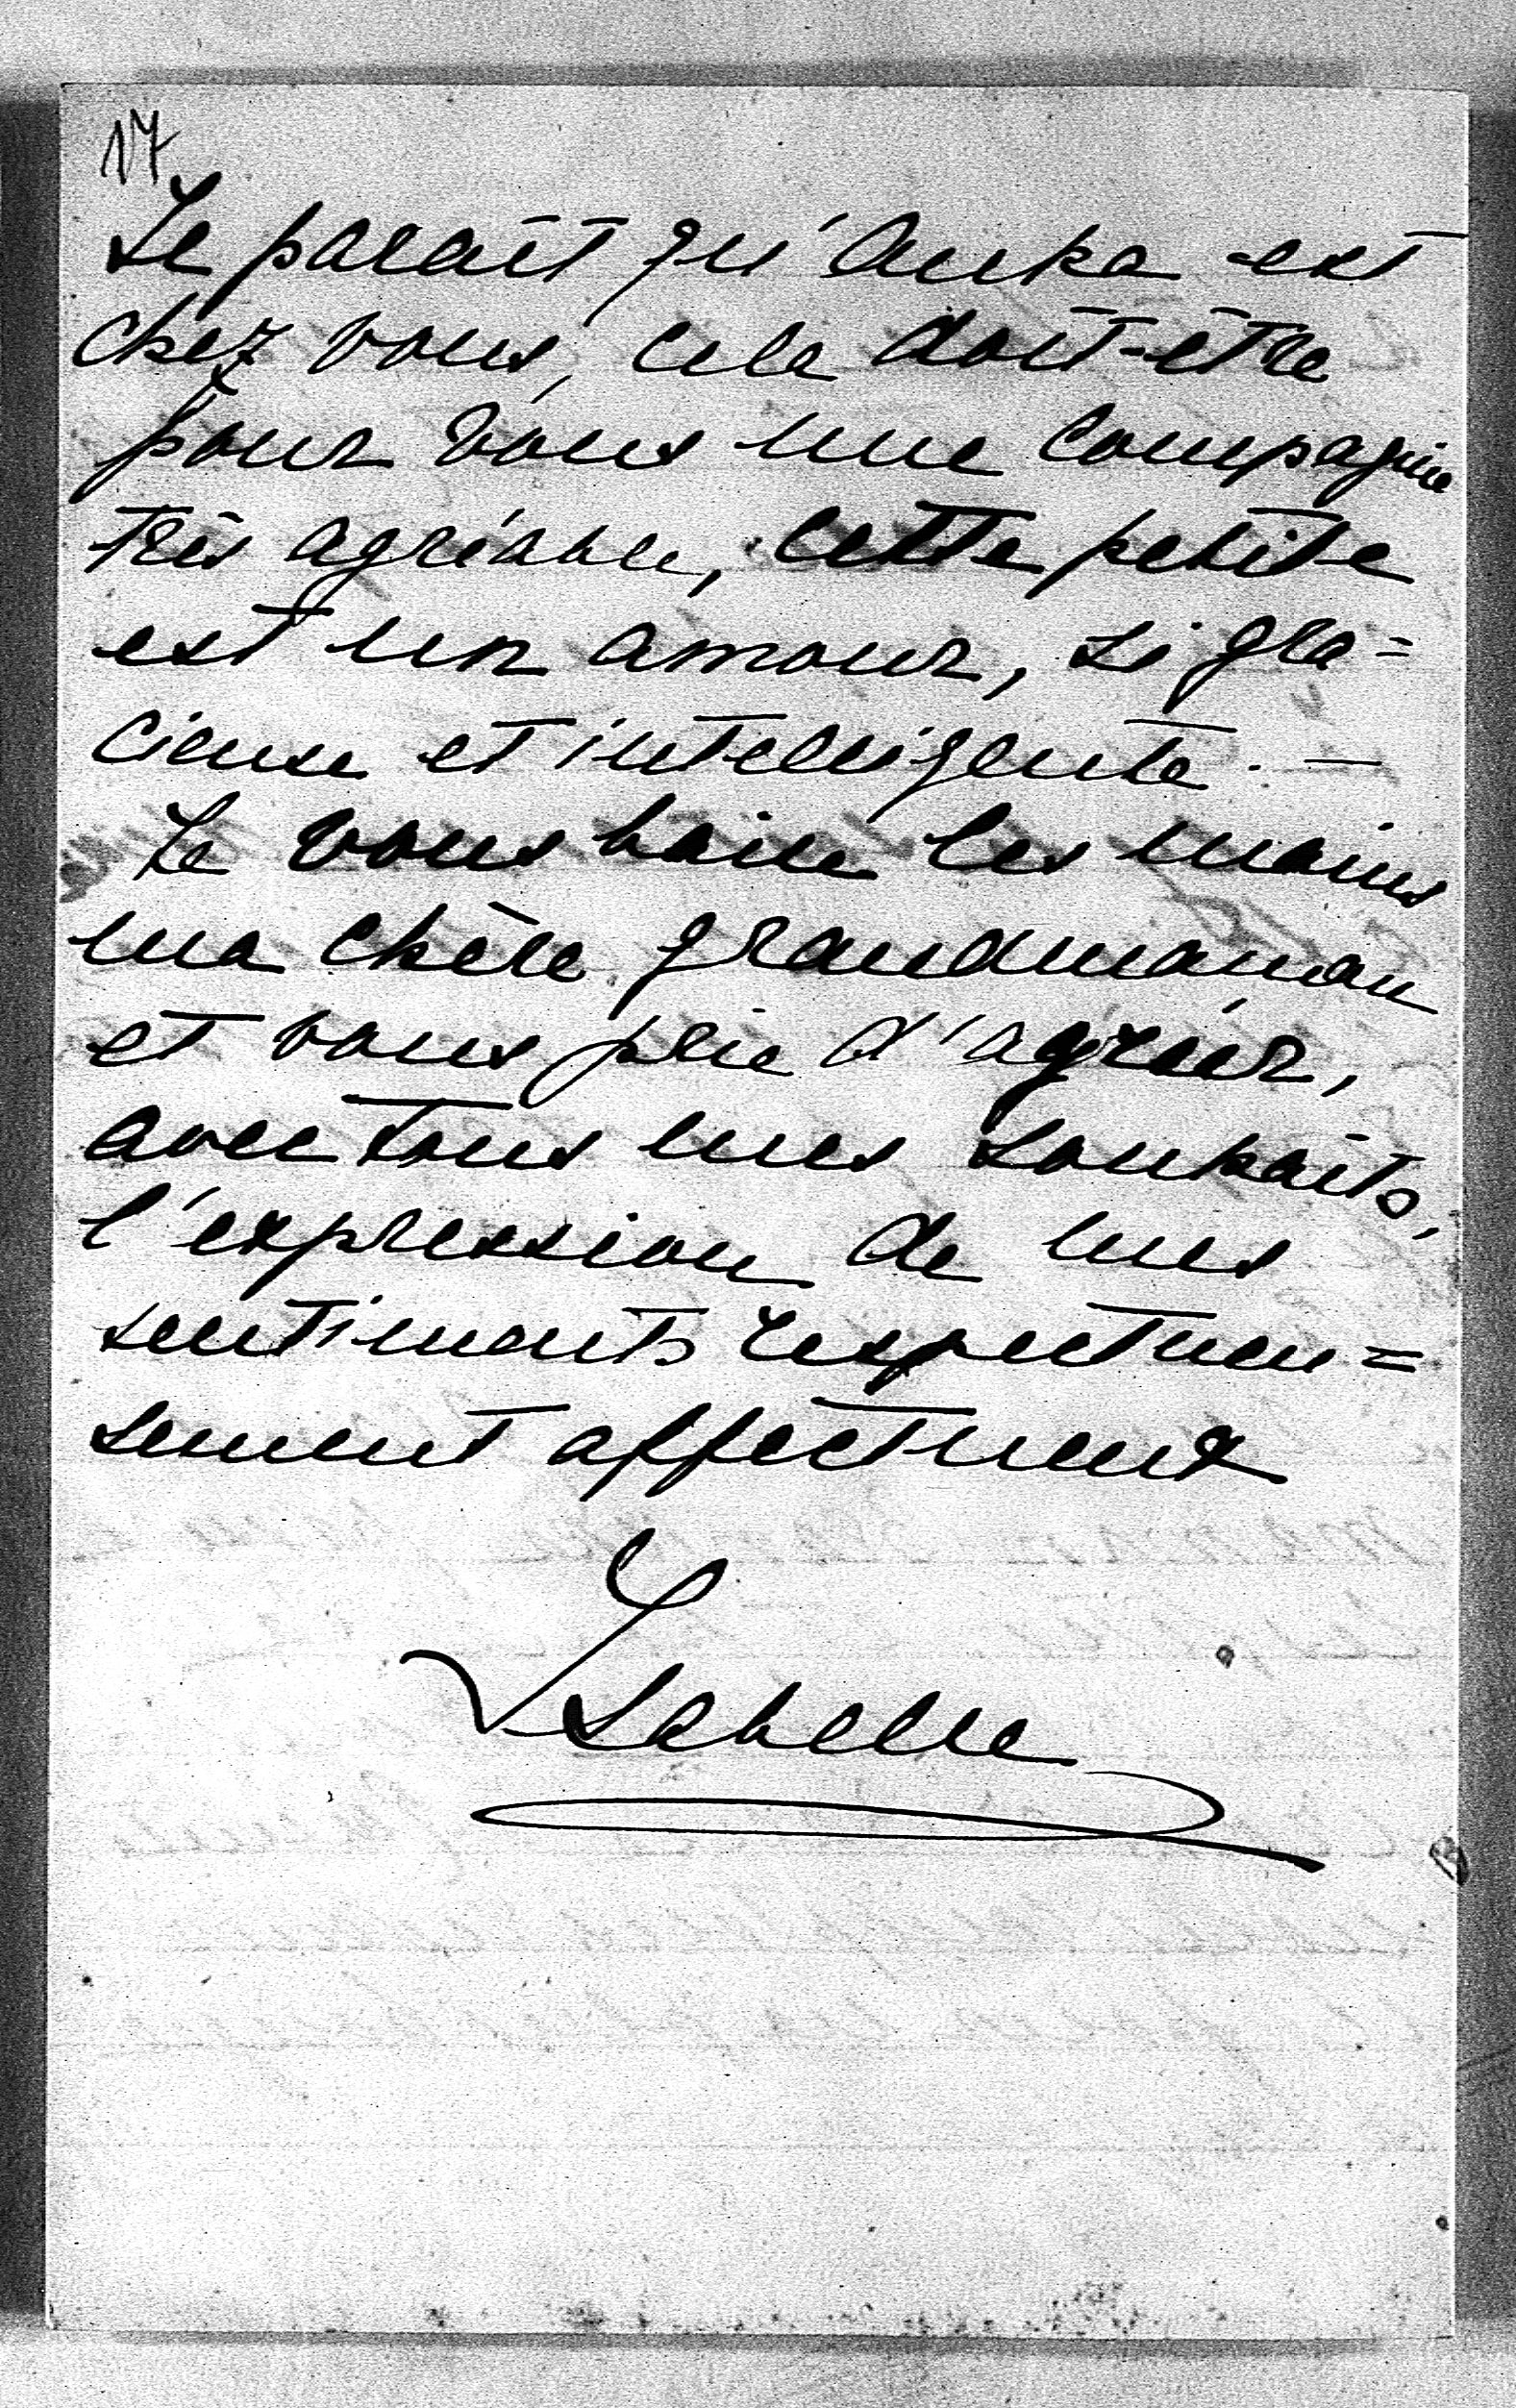 17
Il parait qu'Anka est
chez vous, cela doit-être
pour vous une compagnie
très agréable, cette petite
est un amour, si gra=
cieuse et intelligente. —
Je vous baise les mains
ma chère grandmaman
et vous prie d'agréer,
avec tous mes souhaits,
l'expression de mes
sentiments respectueu=
sement affectueux
Isabelle